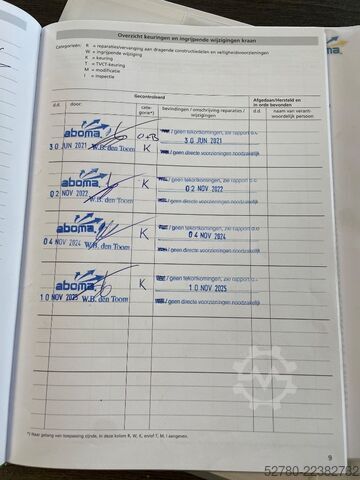 Overzicht keuringen en ingrijpende wijzigingen kraan
Categorieën: R = reparaties/vervanging aan dragende constructiedelen en veiligheidsvoorzieningen
W = ingrijpende wijziging
K = keuring
T = TVCT-keuring
M = modificatie
I = inspectie
Gecontroleerd
Afgedaan/Hersteld en in orde bevonden
d.d. door: cate-gorie*) bevindingen / omschrijving reparaties / wijzigingen d.d. naam van verant-woordelijk persoon
aboma
/ geen tekortkomingen, zie rapport d.d.
30 JUN 2021 W.B. den Toom K 30 JUN 2021
/ geen directe voorzieningen noodzakelijk
aboma K / geen tekortkomingen, zie rapport d.d.
02 NOV 2022 W.B. den Toom 02 NOV 2022
/ geen directe voorzieningen noodzakelijk
aboma K / geen tekortkomingen, zie rapport d.d.
04 NOV 2024 W.B. den Toom 04 NOV 2024
/ geen directe voorzieningen noodzakelijk
aboma K / geen tekortkomingen, zie rapport d.d.
10 NOV 2025 W.B. den Toom 10 NOV 2025
/ geen directe voorzieningen noodzakelijk
*) Naar gelang van toepassing zijnde, in deze kolom R, W, K, en/of T, M, I aangeven.
9
52780-22382762